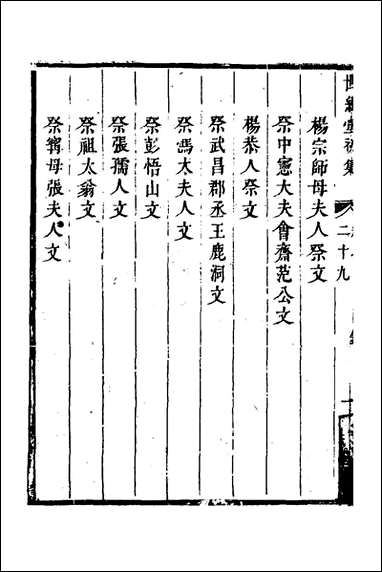 世經堂初集 卷 二十九
楊宗師母夫人祭文
祭中憲大夫會齋范公文
楊恭人祭文
祭武昌郡丞王鹿洞文
祭馮太夫人文
祭彭悟山文
祭張孺人文
祭祖太翁文
祭寗母張夫人文